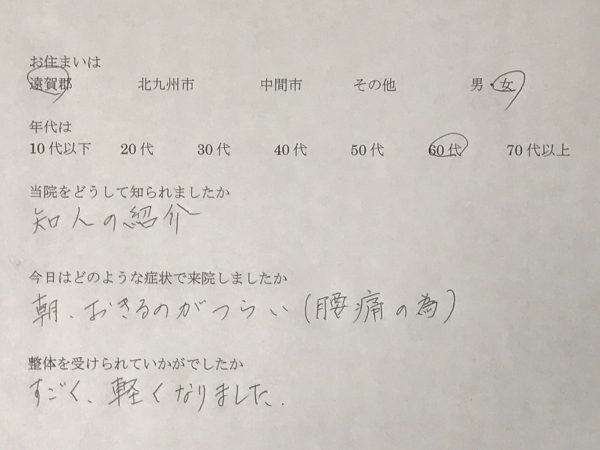 お住まいは
遠賀郡 北九州市 中間市 その他 男・女
年代は
10代以下 20代 30代 40代 50代 60代 70代以上
当院をどうして知られましたか
知人の紹介
今日はどのような症状で来院しましたか
朝、おきるのがつらい(腰痛の為)
整体を受けられていかがでしたか
すごく、軽くなりました.